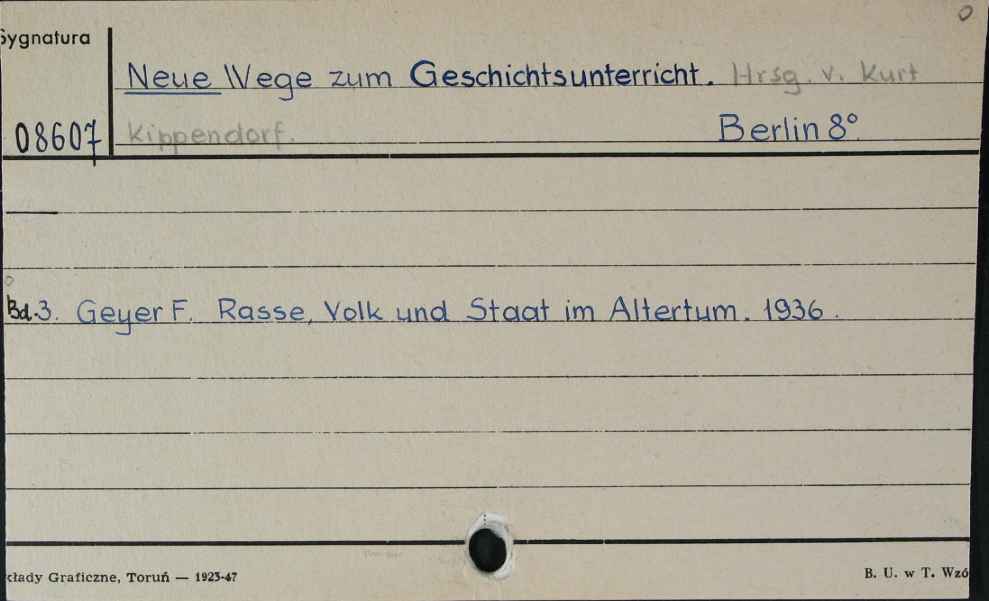 Sygnatura
Neue Wege zum Geschichtsunterricht. Hrsg. v. Kurt
08607 Kippendorf. Berlin 8°.
Bd.3. Geyer F. Rasse, Volk und Staat im Altertum. 1936.
kłady Graficzne, Toruń — 1923-47
B. U. w T. Wzó